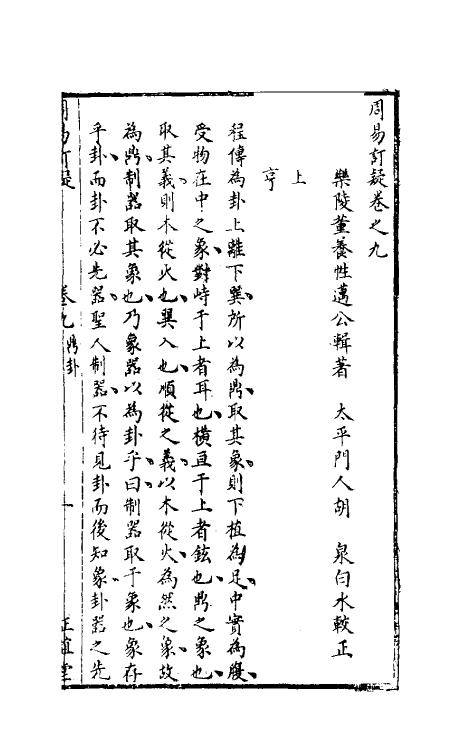 周易訂疑卷之九
樂陵董養性邁公輯著　太平門人胡　泉白水較正
上
亨
程傳為卦上離下巽所以為鼎取其象則下植為足中實為腹
受物在中之象對峙于上者耳也橫亘于上者鉉也鼎之象也
取其義則木從火也巽入也順從之義以木從火為然之象故
為鼎制器取其象也乃象器以為卦乎曰制器取于象也象存
乎卦而卦不必先器聖人制器不待見卦而後知象卦器之先
周易訂疑　卷九鼎卦　一　正誼堂